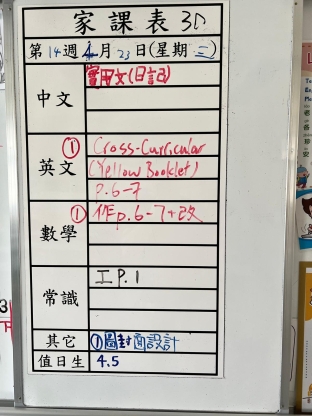 家課表 3D
第14週 4月23日(星期三)
中文 實用文(日記)
英文 ① Cross-Curricular
(Yellow Booklet)
p.6-7
數學 ① 作p.6-7+改
常識 工P.1
其它 ①圖封面設計
值日生 4.5